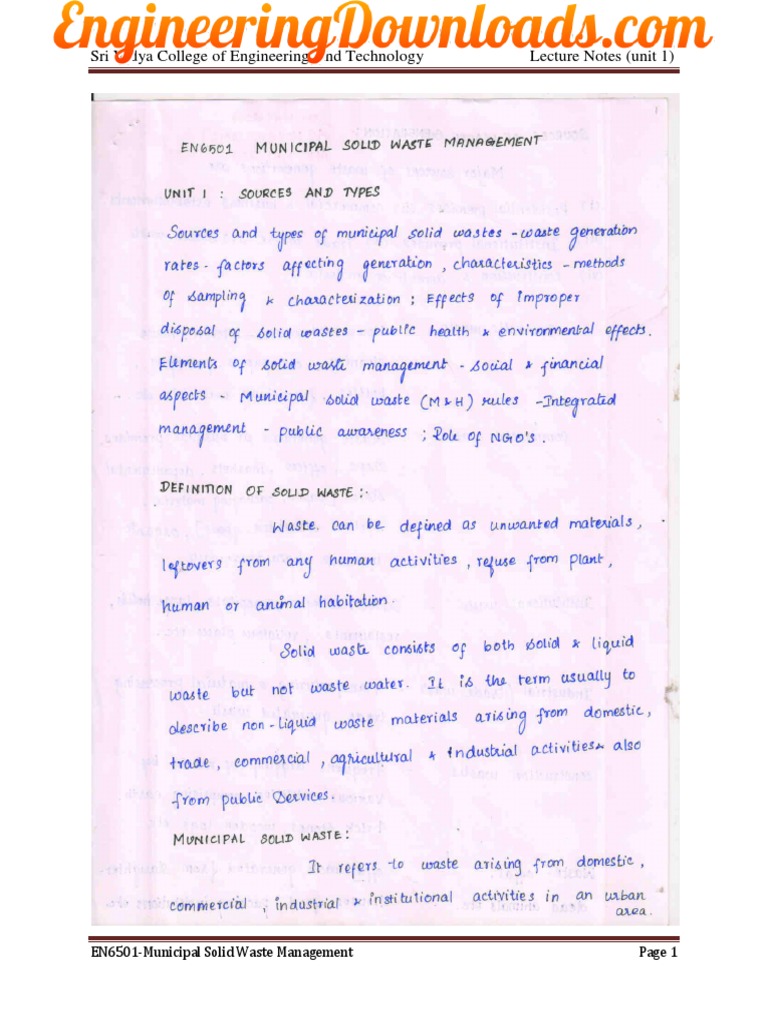 EngineeringDownloads.com
Sri Vidya College of Engineering and Technology Lecture Notes (unit 1)
1
EN6501 MUNICIPAL SOLID WASTE MANAGEMENT
UNIT 1 : SOURCES AND TYPES
Sources and types of municipal solid wastes - waste generation
rates - factors affecting generation, characteristics - methods
of sampling & characterization ; Effects of improper
disposal of solid wastes - public health & environmental effects.
Elements of solid waste management - social & financial
aspects - Municipal solid waste (M&H) rules - Integrated
management - public awareness ; Role of NGO's.
DEFINITION OF SOLID WASTE :-
Waste can be defined as unwanted materials,
leftovers from any human activities, refuse from plant,
human or animal habitation.
Solid waste consists of both solid & liquid
waste but not waste water. It is the term usually to
describe non-liquid waste materials arising from domestic,
trade, commercial, agricultural & industrial activities & also
from public services.
MUNICIPAL SOLID WASTE:
It refers to waste arising from domestic,
commercial, industrial & institutional activities in an urban
area.
EN6501-Municipal Solid Waste Management Page 1